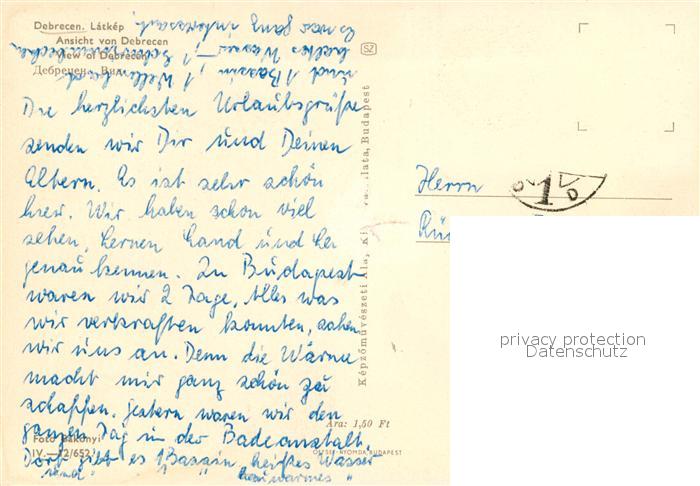 Debrecen. Látkép
Ansicht von Debrecen
View of Debrecen
Дебрецен.
Die herzlichsten Urlaubsgrüße
senden wir Dir und Deinen
Eltern. Es ist sehr schön
hier. Wir haben schon viel
sehen, lernen Land und Le
genau kennen. In Budapest
waren wir 2 Tage. Alles was
wir verkraften konnten, sahen
wir uns an. Denn die Wärme
macht mir ganz schön zu
schaffen. Gestern waren wir den
ganzen Tag in der Badeanstalt.
Dort gibt es 1 Bassin heißes Wasser
1 " lauwarmes "
und 1 Bassin, 1 Wellenbad
kaltes Wasser, 1 Schwimmbecken
Es war ganz interessant.
Foto Bakonyi
IV.—12/652
Ára: 1,50 Ft
OFFSET-NYOMDA, BUDAPEST
Képzőművészeti Alap Budapest
SZ
Herrn
1
D
privacy protection
Datenschutz